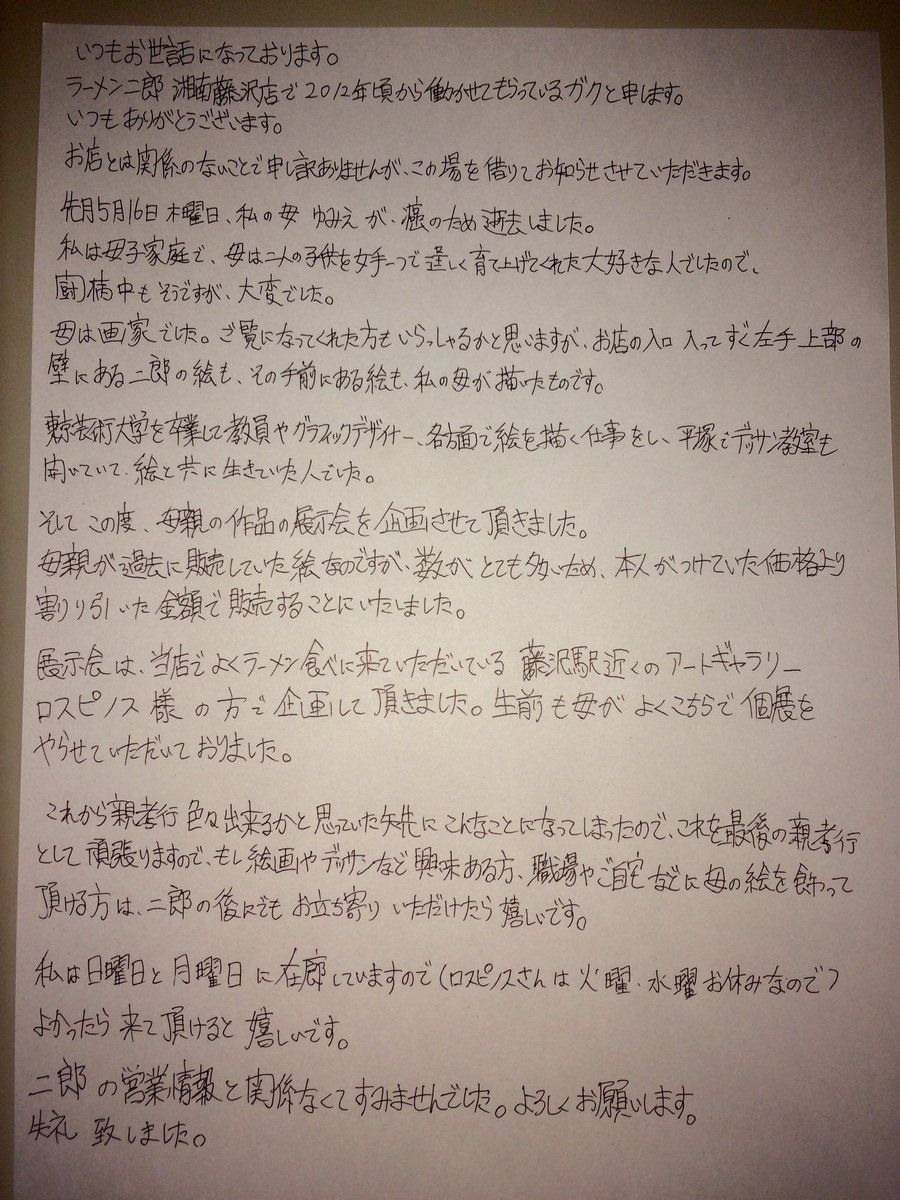 いつもお世話になっております。
ラーメン二郎 湘南藤沢店で2012年頃から働かせてもらっているガクと申します。
いつもありがとうございます。
お店とは関係のないことで申し訳ありませんが、この場を借りてお知らせさせていただきます。
先月5月16日木曜日、私の母 ゆみえ が、癌のため逝去しました。
私は母子家庭で、母は二人の子供を女手一つで逞しく育て上げてくれた大好きな人でしたので、
闘病中もそうですが、大変でした。
母は画家でした。ご覧になってくれた方もいらっしゃるかと思いますが、お店の入口 入ってすぐ左手上部の
壁にある二郎の絵も、その手前にある絵も、私の母が描いたものです。
東京芸術大学を卒業して教員やグラフィックデザイナー、各方面で絵を描く仕事をし、平塚でデッサン教室も
開いていて、絵と共に生きていた人でした。
そして この度、母親の作品の展示会を企画させて頂きました。
母親が過去に販売していた絵なのですが、数がとても多いため、本人がつけていた価格より
割り引いた金額で販売することにいたしました。
展示会は、当店でよくラーメン食べに来ていただいている 藤沢駅近くのアートギャラリー
ロスピノス様の方で企画して頂きました。生前も母がよくこちらで個展を
やらせていただいておりました。
これから親孝行色々出来るかと思っていた矢先に こんなことになってしまったので、これを最後の親孝行
として頑張りますので、もし絵画やデッサンなど興味ある方、職場やご自宅などに母の絵を飾って
頂ける方は、二郎の後にでもお立ち寄りいただけたら嬉しいです。
私は日曜日と月曜日に在廊していますので(ロスピノスさんは火曜、水曜お休みなので)
よかったら来て頂けると嬉しいです。
二郎の営業情報と関係なくてすみませんでした。よろしくお願いします。
失礼 致しました。